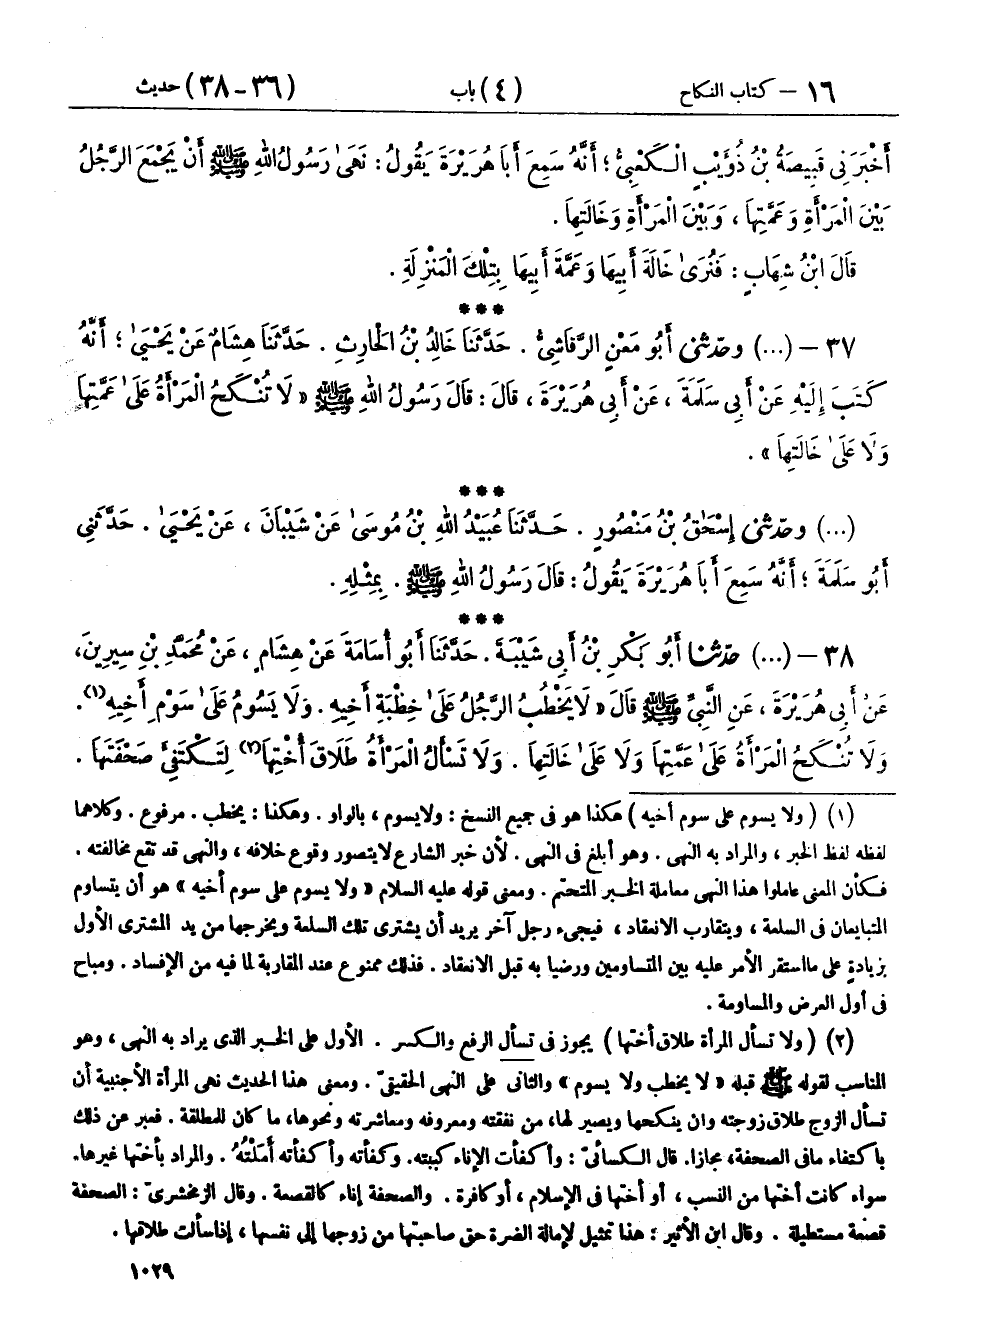 ١٦ – كتاب النكاح (٤) باب (٣٦ – ٣٨) حديث
أَخْبَرَنِي قَبِيصَةُ بْنُ ذُؤَيْبٍ الْكَعْبِيُّ؛ أَنَّهُ سَمِعَ أَبَا هُرَيْرَةَ يَقُولُ: نَهَى رَسُولُ اللهِ ﷺ أَنْ يَجْمَعَ الرَّجُلُ
بَيْنَ الْمَرْأَةِ وَعَمَّتِهَا، وَبَيْنَ الْمَرْأَةِ وَخَالَتِهَا.
قَالَ ابْنُ شِهَابٍ: فَنُرَىٰ خَالَةَ أَبِيهَا وَعَمَّةَ أَبِيهَا بِتِلْكَ الْمَنْزِلَةِ.
***
٣٧ – (...) وحَدَّثَنِي أَبُو مَعْنٍ الرَّقَاشِيُّ. حَدَّثَنَا خَالِدُ بْنُ الْحَارِثِ. حَدَّثَنَا هِشَامٌ عَنْ يَحْيَىٰ؛ أَنَّهُ
كَتَبَ إِلَيْهِ عَنْ أَبِي سَلَمَةَ، عَنْ أَبِي هُرَيْرَةَ، قَالَ: قَالَ رَسُولُ اللهِ ﷺ «لَا تُنْكَحُ الْمَرْأَةُ عَلَىٰ عَمَّتِهَا
وَلَا عَلَىٰ خَالَتِهَا».
***
(...) وحَدَّثَنِي إِسْحَٰقُ بْنُ مَنْصُورٍ. حَدَّثَنَا عُبَيْدُ اللهِ بْنُ مُوسَىٰ عَنْ شَيْبَانَ، عَنْ يَحْيَىٰ. حَدَّثَنِي
أَبُو سَلَمَةَ؛ أَنَّهُ سَمِعَ أَبَا هُرَيْرَةَ يَقُولُ: قَالَ رَسُولُ اللهِ ﷺ. بِمِثْلِهِ.
***
٣٨ – (...) حَدَّثَنَا أَبُو بَكْرِ بْنُ أَبِي شَيْبَةَ. حَدَّثَنَا أَبُو أُسَامَةَ عَنْ هِشَامٍ، عَنْ مُحَمَّدِ بْنِ سِيرِينَ،
عَنْ أَبِي هُرَيْرَةَ، عَنِ النَّبِيِّ ﷺ قَالَ «لَا يَخْطُبُ الرَّجُلُ عَلَىٰ خِطْبَةِ أَخِيهِ. وَلَا يَسُومُ عَلَىٰ سَوْمِ أَخِيهِ(١).
وَلَا تُنْكَحُ الْمَرْأَةُ عَلَىٰ عَمَّتِهَا وَلَا عَلَىٰ خَالَتِهَا. وَلَا تَسْأَلُ الْمَرْأَةُ طَلَاقَ أُخْتِهَا(٢) لِتَكْتَفِئَ صَحْفَتَهَا.
(١) (ولا يسوم على سوم أخيه) هكذا هو فى جميع النسخ: ولا يسوم، بالواو. وهكذا: يخطب. مرفوع. وكلاهما
لفظه لفظ الخبر، والمراد به النهى. وهو أبلغ فى النهى. لأن خبر الشارع لا يتصور وقوع خلافه، والنهى قد تقع مخالفته.
فكأن المعنى عاملوا هذا النهى معاملة الخبر المتحتم. ومعنى قوله عليه السلام «ولا يسوم على سوم أخيه» هو أن يتساوم
المتبايعان فى السلعة، ويتقارب الانعقاد، فيجىء رجل آخر يريد أن يشترى تلك السلعة ويخرجها من يد المشترى الأول
بزيادةٍ على مااستقر الأمر عليه بين المتساومين ورضيا به قبل الانعقاد. فذلك ممنوع عند المقاربة لما فيه من الإفساد. ومباح
فى أول العرض والمساومة.
(٢) (ولا تسأل المرأة طلاق أختها) يجوز فى تسأل الرفع والكسر. الأول على الخبر الذى يراد به النهى، وهو
المناسب لقوله ﷺ قبله «لا يخطب ولا يسوم» والثانى على النهى الحقيقىّ. ومعنى هذا الحديث نهى المرأة الأجنبية أن
تسأل الزوج طلاق زوجته وان ينكحها ويصير لها، من نفقته ومعروفه ومعاشرته ونحوها، ما كان للمطلقة. فعبر عن ذلك
باكتفاء مافى الصحفة، مجازا. قال الكسائىّ: وأكفأت الإناء كببته. وكفأته وأكفأته أملْتُهُ. والمراد بأختها غيرها.
سواء كانت أختها من النسب، أو أختها فى الإسلام، أو كافرة. والصحفة إناء كالقصعة. وقال الزمخشرىّ: الصحفة
قصعة مستطيلة. وقال ابن الأثير: هذا تمثيل لإمالة الضرة حق صاحبتها من زوجها إلى نفسها، إذا سألت طلاقها.
١٠٢٩